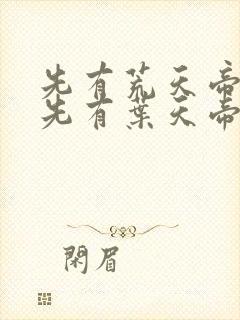 先有荒天帝
先有葉天帝
閑眉